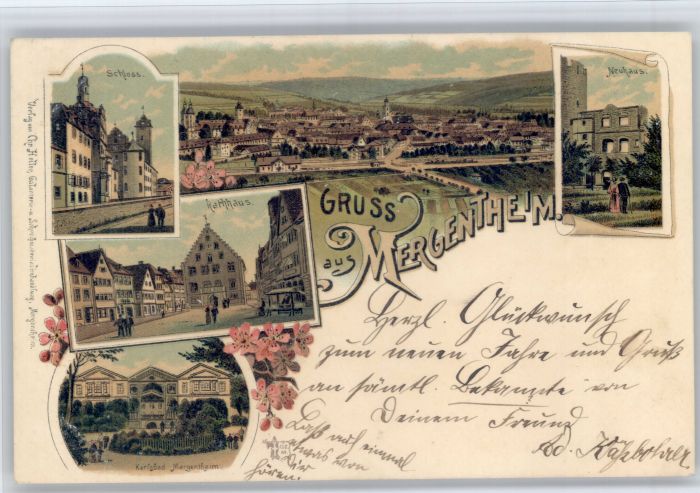 Schloss.
Neuhaus.
Rathhaus.
GRUSS
aus
MERGENTHEIM.
Karlsbad Mergentheim.
Herzl. Glückwunsch
zum neuen Jahre und Gruß
an sämtl. Bekannte von
Deinem Freund
Ad.
Laß auch einmal
etwas von
Dir
hören.
Verlag von Chr. Galanterie- u. Schreibmaterialienhandlung, Mergentheim.